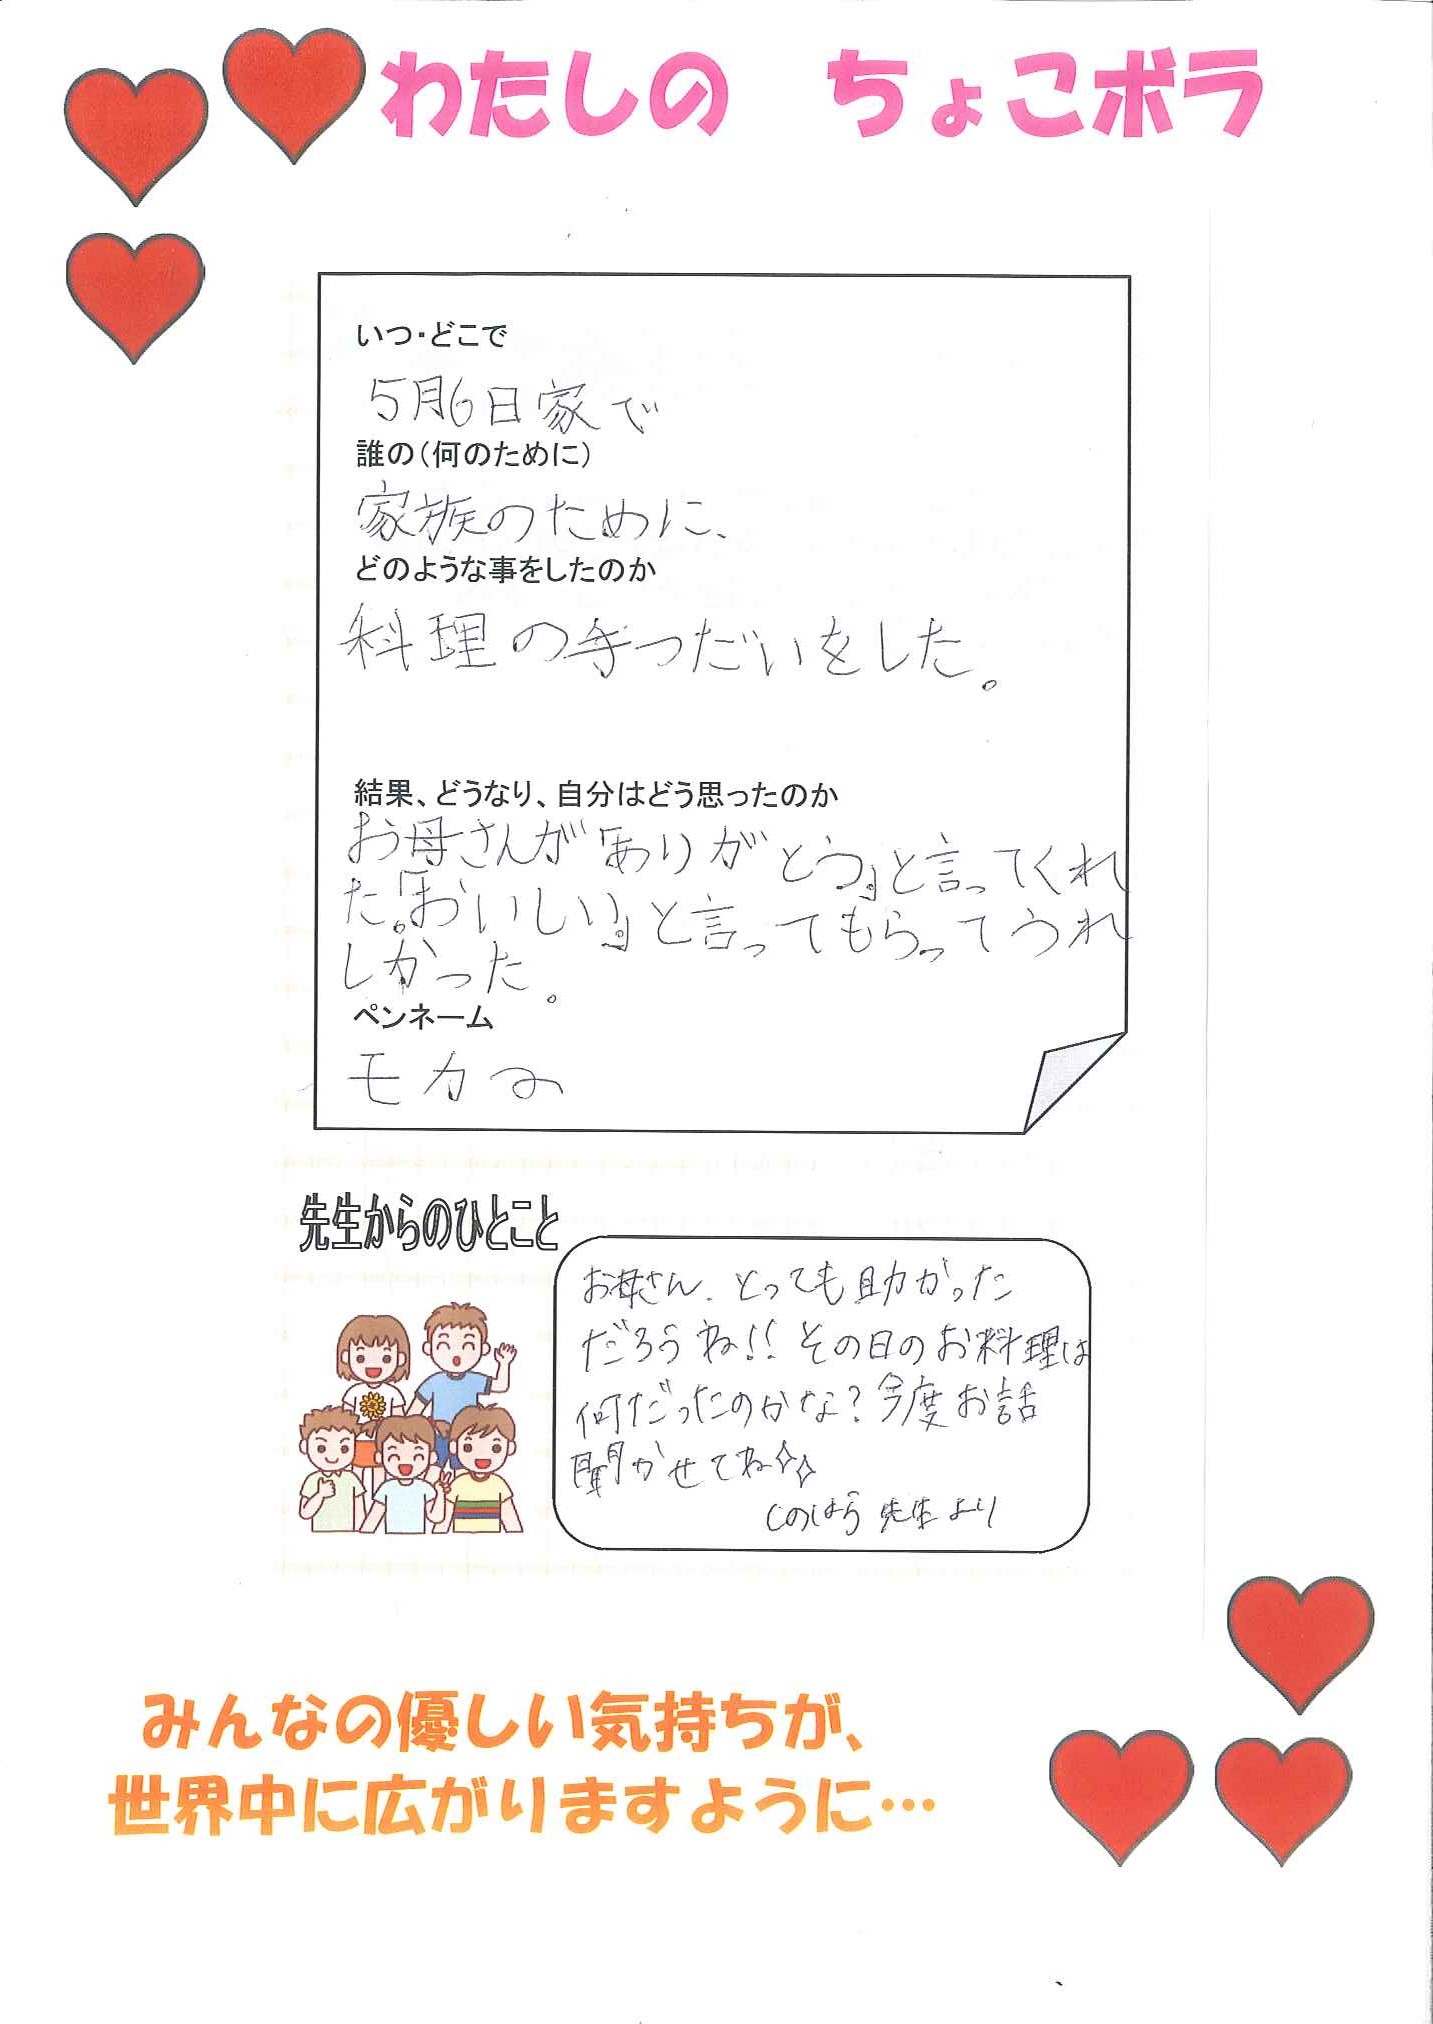 わたしの　ちょこボラ
いつ・どこで
5月6日家で
誰の（何のために）
家族のために、
どのような事をしたのか
料理の手つだいをした。
結果、どうなり、自分はどう思ったのか
お母さんが「ありがとう」と言ってくれ
た。「おいしい」と言ってもらってうれ
しかった。
ペンネーム
モカみ
先生からのひとこと
お母さん、とっても助かった
だろうね!! その日のお料理は
何だったのかな？今度お話
聞かせてね
しのはら先生より
みんなの優しい気持ちが、
世界中に広がりますように…